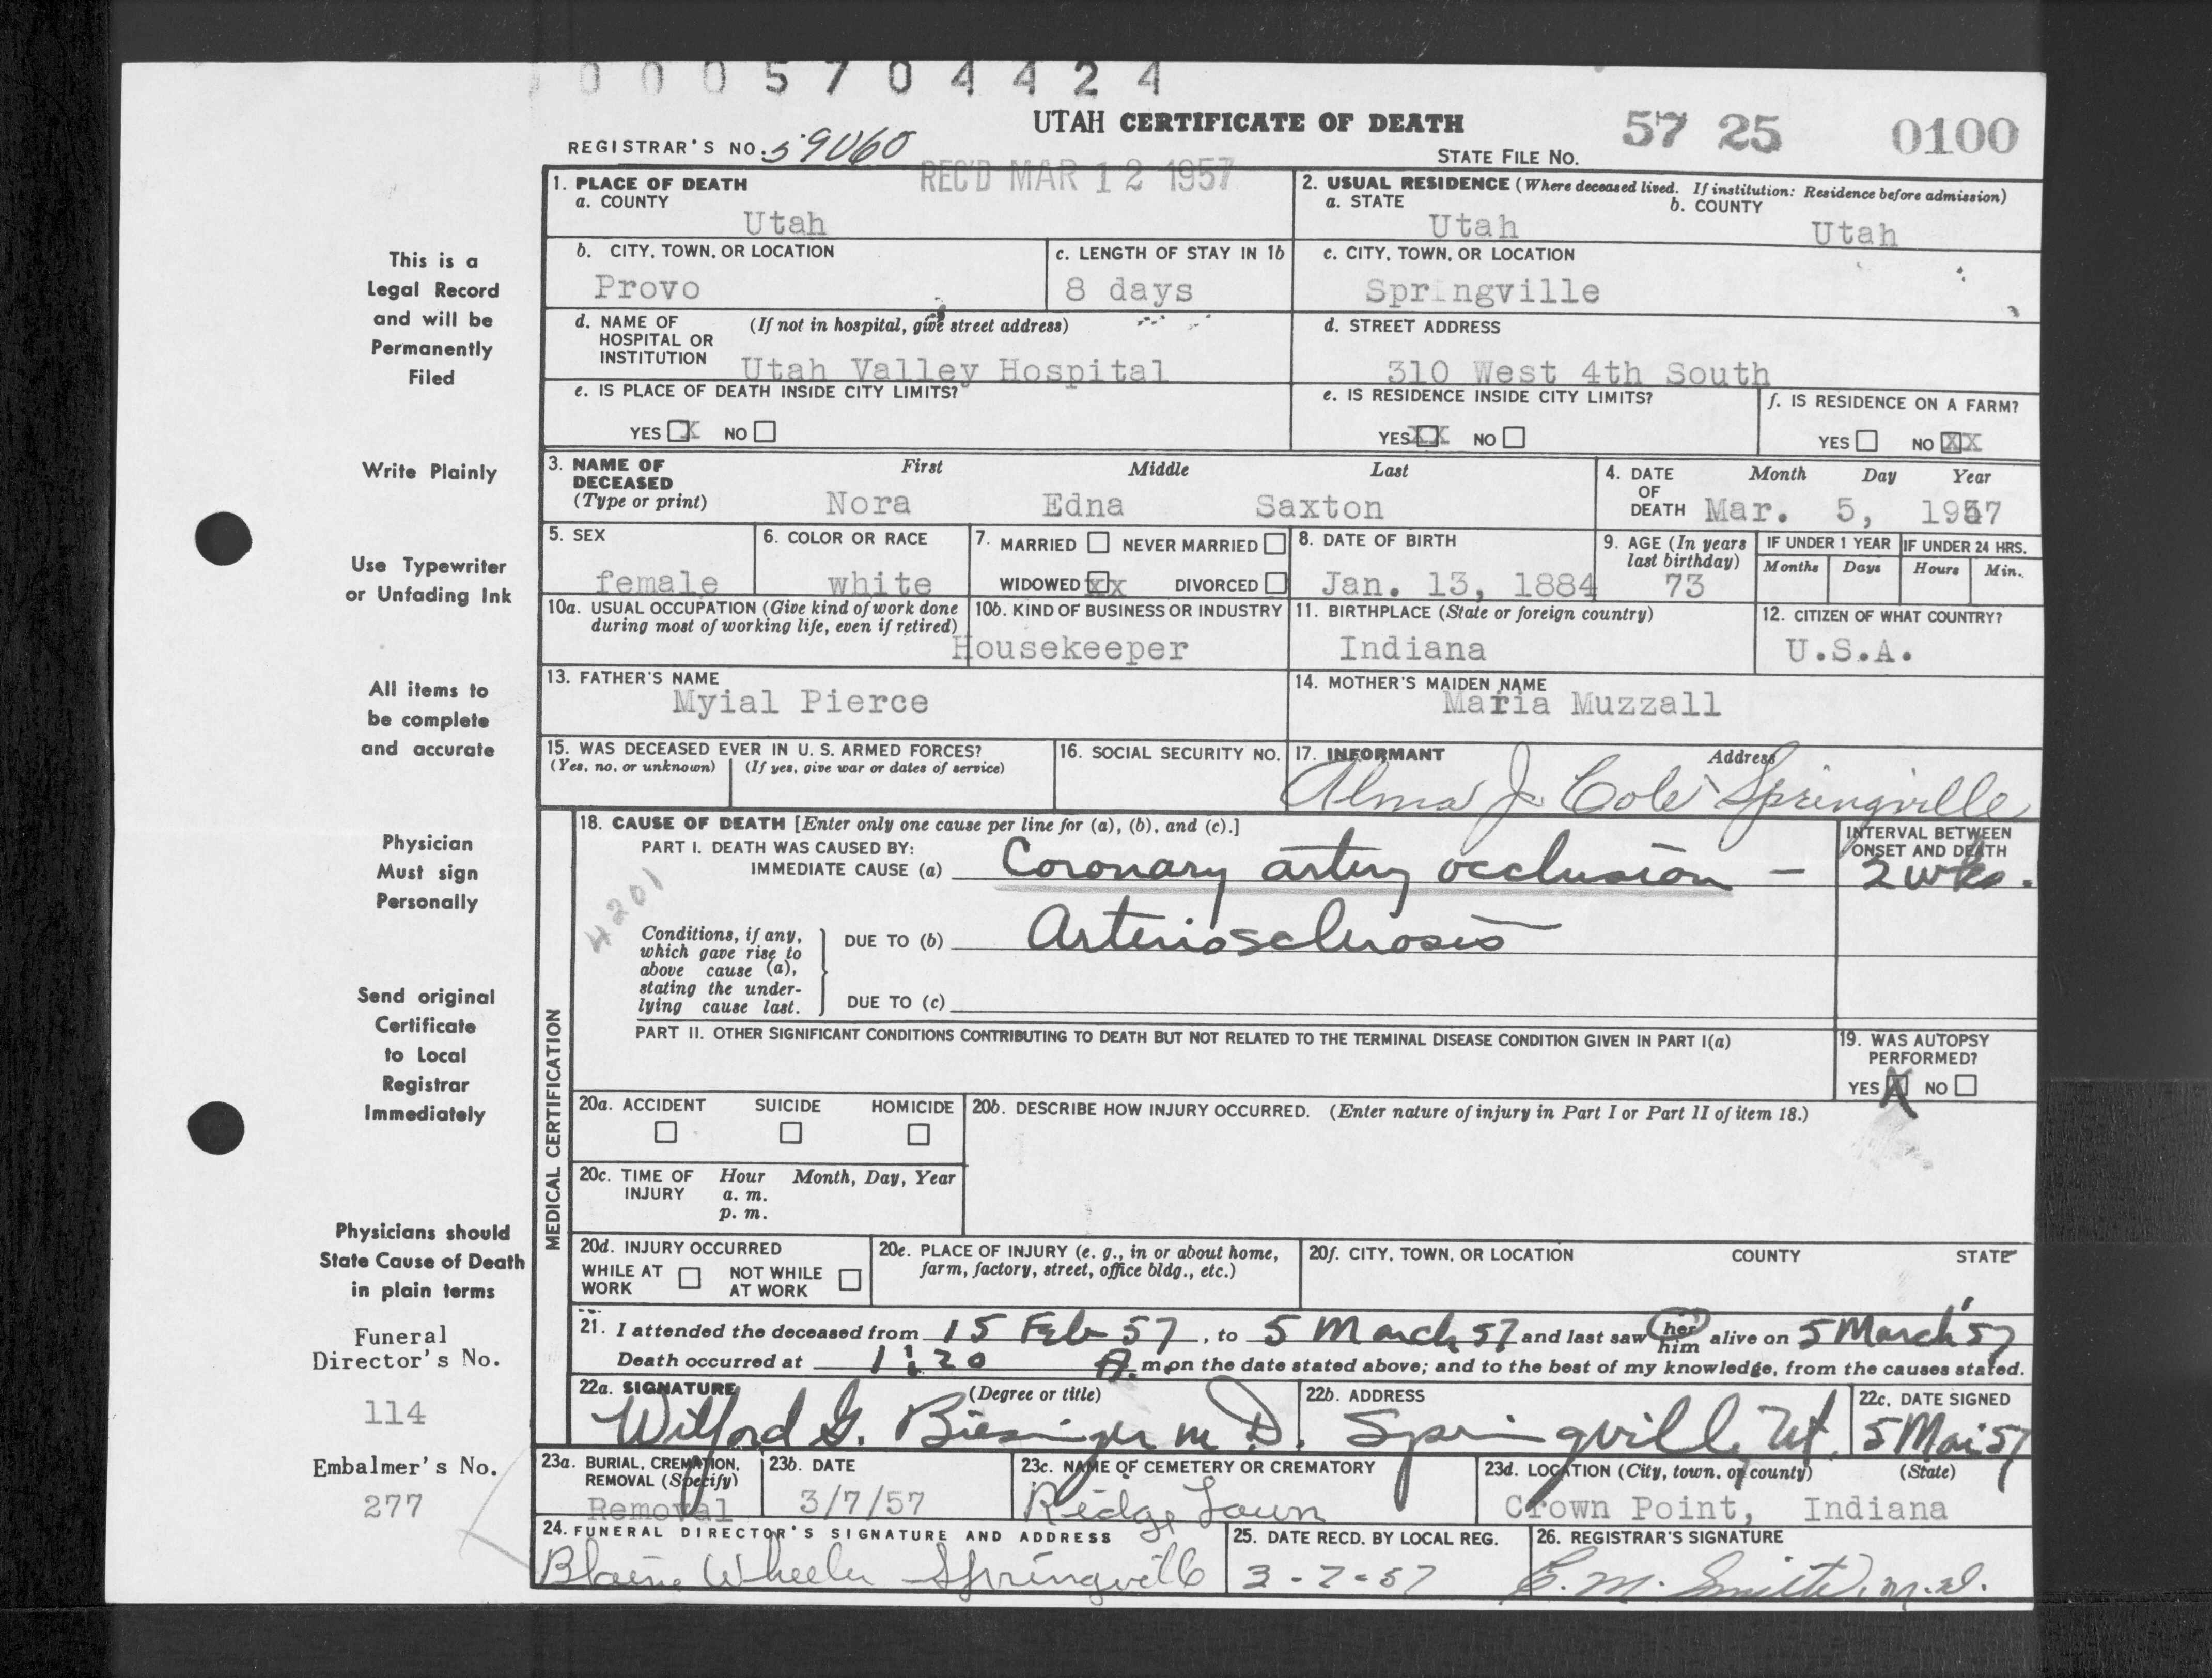 0005704424
UTAH CERTIFICATE OF DEATH
57 25 0100
REGISTRAR'S NO. 59060
STATE FILE NO.
REC'D MAR 12 1957
1. PLACE OF DEATH
a. COUNTY
Utah
2. USUAL RESIDENCE (Where deceased lived. If institution: Residence before admission)
a. STATE
Utah
b. COUNTY
Utah
b. CITY, TOWN, OR LOCATION
Provo
c. LENGTH OF STAY IN 1b
8 days
c. CITY, TOWN, OR LOCATION
Springville
d. NAME OF HOSPITAL OR INSTITUTION
(If not in hospital, give street address)
Utah Valley Hospital
d. STREET ADDRESS
310 West 4th South
e. IS PLACE OF DEATH INSIDE CITY LIMITS?
YES X NO
e. IS RESIDENCE INSIDE CITY LIMITS?
YES XX NO
f. IS RESIDENCE ON A FARM?
YES NO XX
3. NAME OF DECEASED
(Type or print)
First Middle Last
Nora Edna Saxton
4. DATE OF DEATH
Month Day Year
Mar. 5, 1957
5. SEX
female
6. COLOR OR RACE
white
7. MARRIED NEVER MARRIED
WIDOWED XX DIVORCED
8. DATE OF BIRTH
Jan. 13, 1884
9. AGE (In years last birthday)
73
IF UNDER 1 YEAR
Months Days
IF UNDER 24 HRS.
Hours Min.
10a. USUAL OCCUPATION (Give kind of work done during most of working life, even if retired)
10b. KIND OF BUSINESS OR INDUSTRY
Housekeeper
11. BIRTHPLACE (State or foreign country)
Indiana
12. CITIZEN OF WHAT COUNTRY?
U.S.A.
13. FATHER'S NAME
Myial Pierce
14. MOTHER'S MAIDEN NAME
Maria Muzzall
15. WAS DECEASED EVER IN U. S. ARMED FORCES?
(Yes, no, or unknown) (If yes, give war or dates of service)
16. SOCIAL SECURITY NO.
17. INFORMANT Address
Alma J. Cole Springville
MEDICAL CERTIFICATION
18. CAUSE OF DEATH [Enter only one cause per line for (a), (b), and (c).]
PART I. DEATH WAS CAUSED BY:
IMMEDIATE CAUSE (a) Coronary artery occlusion –
INTERVAL BETWEEN ONSET AND DEATH
2 wks.
4201
Conditions, if any, which gave rise to above cause (a), stating the underlying cause last.
DUE TO (b) Arteriosclerosis
DUE TO (c)
PART II. OTHER SIGNIFICANT CONDITIONS CONTRIBUTING TO DEATH BUT NOT RELATED TO THE TERMINAL DISEASE CONDITION GIVEN IN PART I(a)
19. WAS AUTOPSY PERFORMED?
YES X NO
20a. ACCIDENT SUICIDE HOMICIDE
20b. DESCRIBE HOW INJURY OCCURRED. (Enter nature of injury in Part I or Part II of item 18.)
20c. TIME OF INJURY
Hour Month, Day, Year
a. m.
p. m.
20d. INJURY OCCURRED
WHILE AT WORK NOT WHILE AT WORK
20e. PLACE OF INJURY (e. g., in or about home, farm, factory, street, office bldg., etc.)
20f. CITY, TOWN, OR LOCATION COUNTY STATE
21. I attended the deceased from 15 Feb 57, to 5 March 57 and last saw her him alive on 5 March 57
Death occurred at 1:20 A. m on the date stated above; and to the best of my knowledge, from the causes stated.
22a. SIGNATURE (Degree or title)
Wilford G. Biesinger M D.
22b. ADDRESS
Springville, Ut.
22c. DATE SIGNED
5 Mar 57
23a. BURIAL, CREMATION, REMOVAL (Specify)
Removal
23b. DATE
3/7/57
23c. NAME OF CEMETERY OR CREMATORY
Ridge Lawn
23d. LOCATION (City, town, or county) (State)
Crown Point, Indiana
24. FUNERAL DIRECTOR'S SIGNATURE AND ADDRESS
Blaine Wheeler Springville
25. DATE RECD. BY LOCAL REG.
3-7-57
26. REGISTRAR'S SIGNATURE
E. M. Smith, M.D.
This is a
Legal Record
and will be
Permanently
Filed
Write Plainly
Use Typewriter
or Unfading Ink
All items to
be complete
and accurate
Physician
Must sign
Personally
Send original
Certificate
to Local
Registrar
Immediately
Physicians should
State Cause of Death
in plain terms
Funeral
Director's No.
114
Embalmer's No.
277